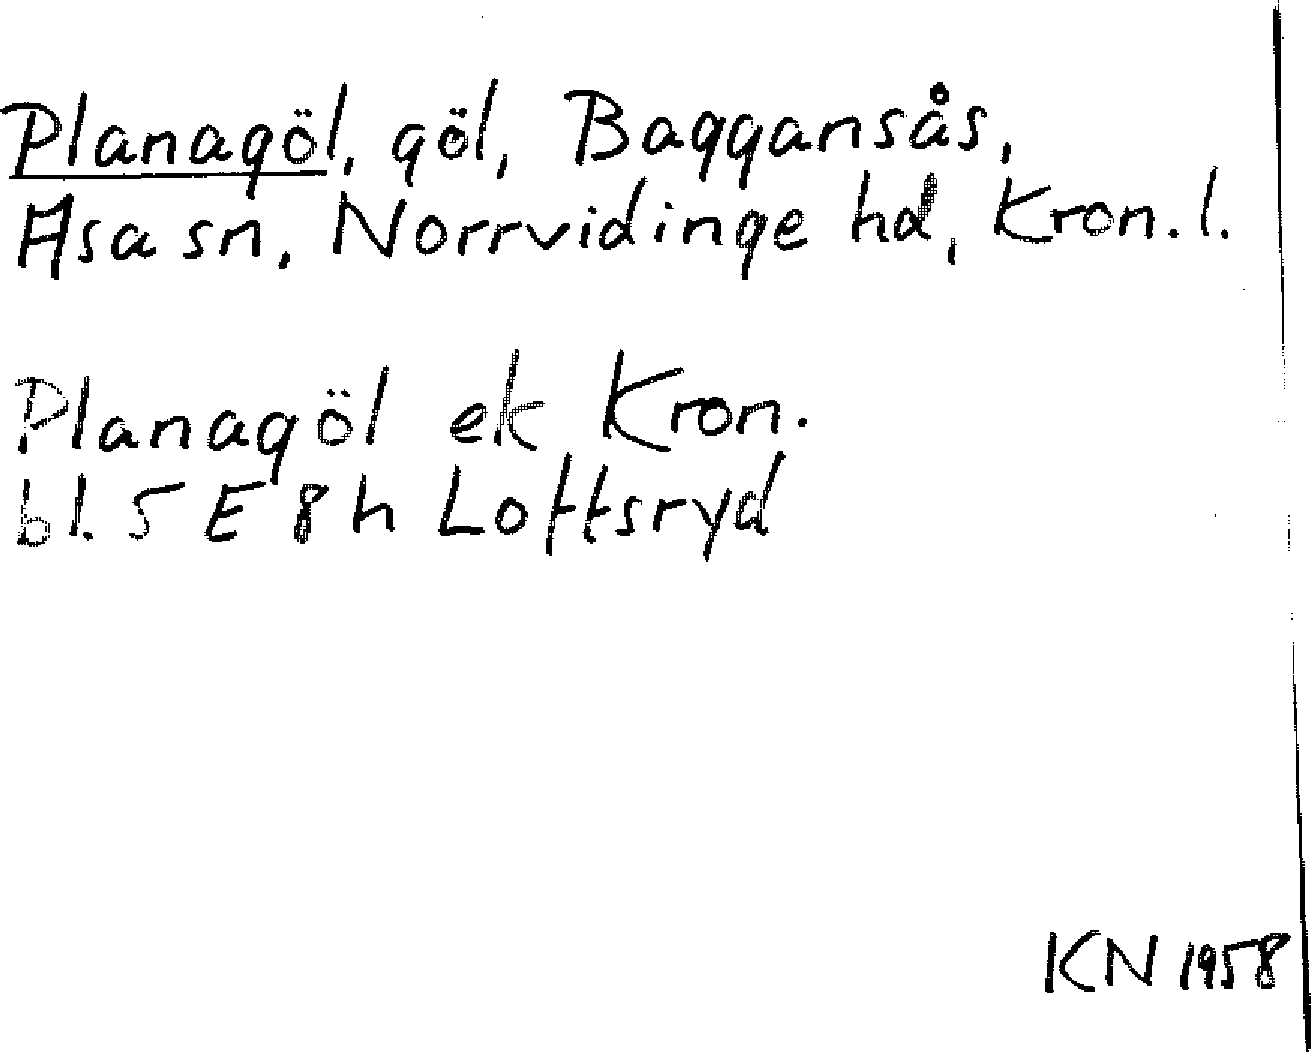 Planagöl, göl, Baggansås,
Asa sn, Norrvidinge hd, Kron. l.
Planagöl ek Kron.
bl. 5 E 8 h Lottsryd
KN 1958